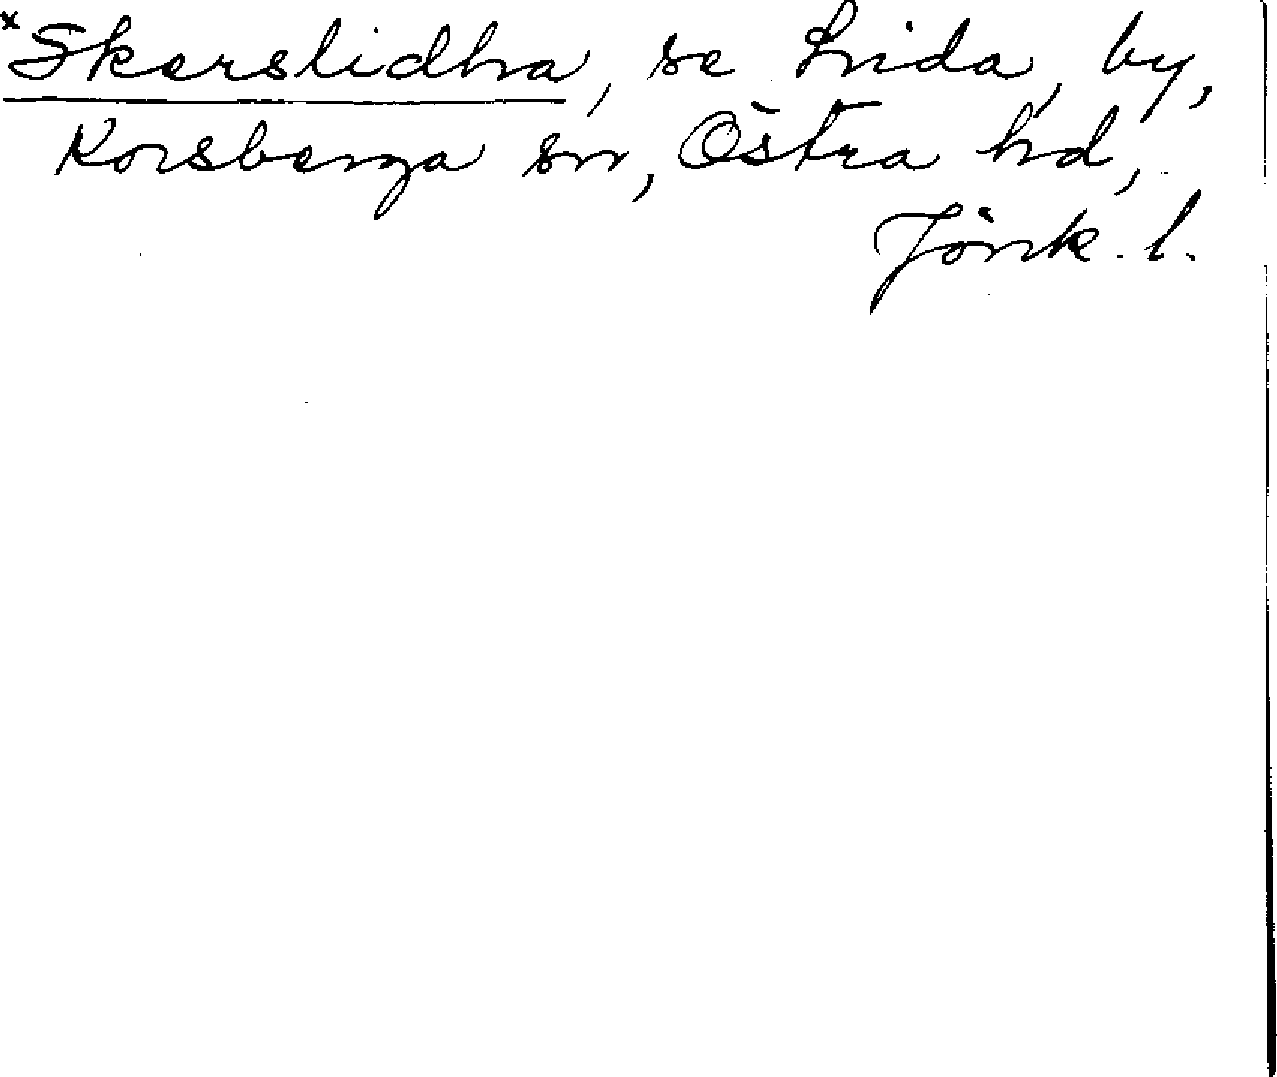 ×Skerslidha, se Lida, by,
Korsberga sn, Östra hd,
Jönk. l.